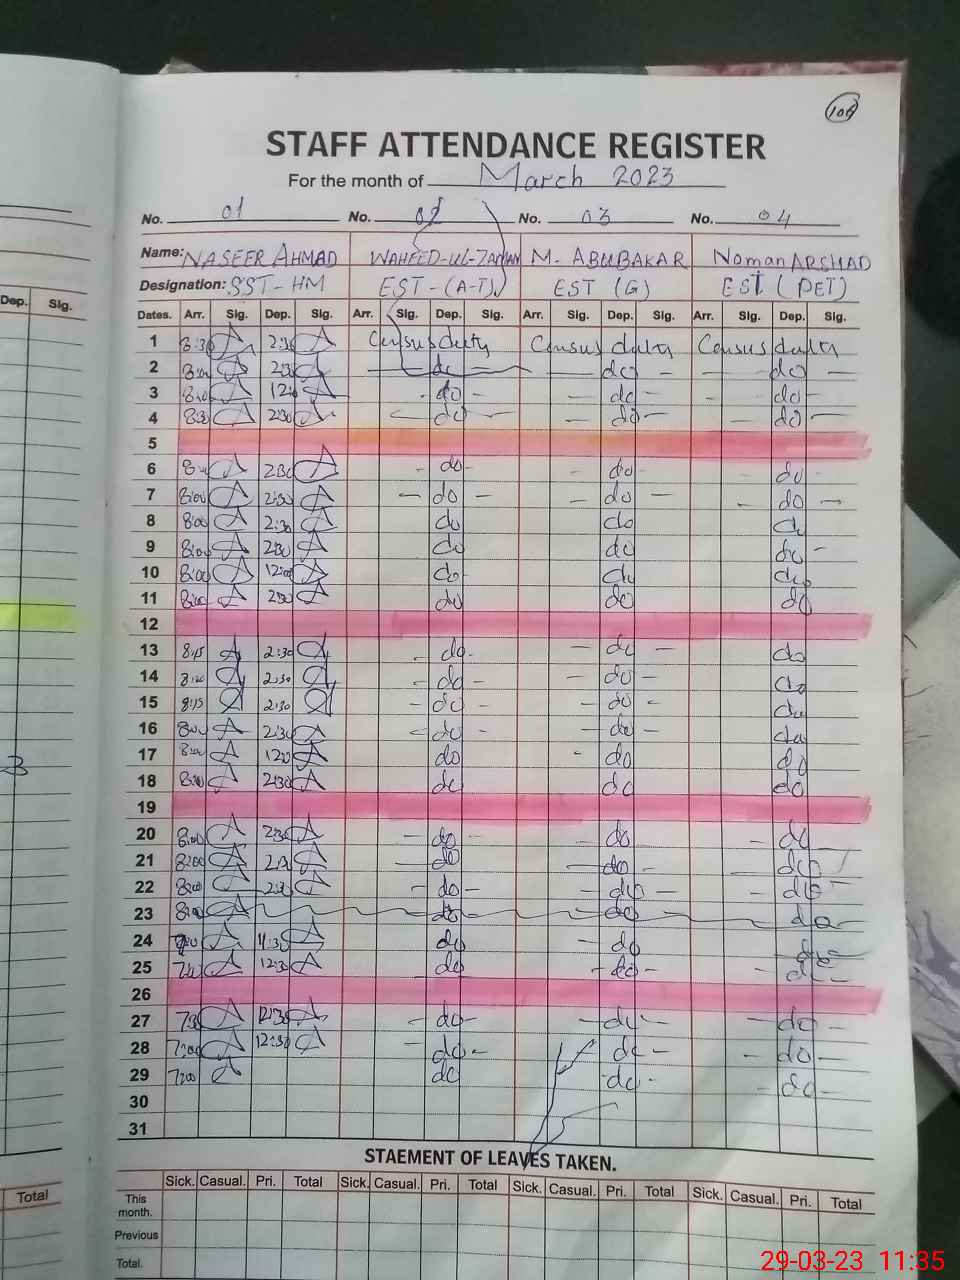 106
STAFF ATTENDANCE REGISTER
For the month of March 2023
No. 01 No. 02 No. 03 No. 04
Name: NASEER AHMAD WAHEED-UL-ZAMAN M. ABUBAKAR Noman ARSHAD
Designation: SST-HM EST-(A-T) EST (G) EST (PET)
Dep. Sig. Dates. Arr. Sig. Dep. Sig. Arr. Sig. Dep. Sig. Arr. Sig. Dep. Sig. Arr. Sig. Dep. Sig.
1 8:30 2:30 Census duty Census duty Census duty
2 2:30 do do do
3 do do do
4 8:30 2:30 do do do
5
6 2:30 do do do
7 8:00 2:30 do do do
8 8:00 2:30 do do do
9 8:00 2:30 do do do
10 8:00 12:00 do do do
11 8:00 2:30 do do do
12
13 8:15 2:30 do do do
14 2:30 do do do
15 8:15 2:30 do do do
16 8:00 2:30 do do do
17 8:00 1200 do do do
18 8:00 2:30 do do do
19
20 8:00 2:30 do do do
21 8:00 2:30 do do do
22 8:00 2:30 do do do
23 8:00 do do do
24 11:30 do do do
25 12:30 do do do
26
27 7:30 12:30 do do do
28 12:30 do do do
29 do do do
30
31
STAEMENT OF LEAVES TAKEN.
Sick. Casual. Pri. Total Sick. Casual. Pri. Total Sick. Casual. Pri. Total Sick. Casual. Pri. Total
Total This month.
Previous
Total.
29-03-23 11:35